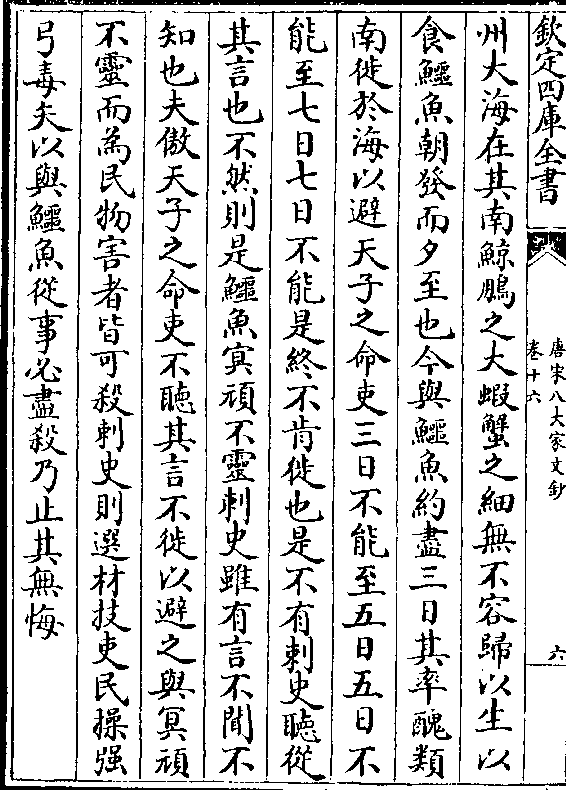 欽定四庫全書
唐宋八大家文鈔
卷十六
六
州大海在其南鯨鵬之大蝦蟹之細無不容歸以生以
食鱷魚朝發而夕至也今與鱷魚約盡三日其率醜類
南徙於海以避天子之命吏三日不能至五日五日不
能至七日七日不能是終不肯徙也是不有刺史聽從
其言也不然則是鱷魚冥頑不靈刺史雖有言不聞不
知也夫傲天子之命吏不聽其言不徙以避之與冥頑
不靈而為民物害者皆可殺刺史則選材技吏民操强
弓毒矢以與鱷魚從事必盡殺乃止其無悔